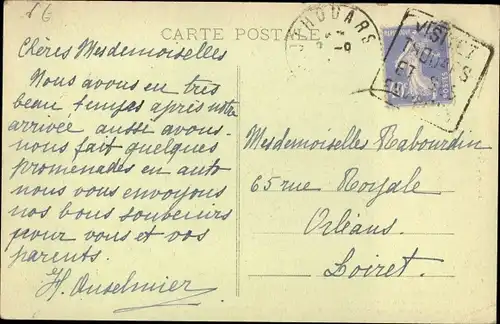 16
CARTE POSTALE
THOUARS
VISITEZ
THOUARS
ET
POSTES
Chères Mesdemoiselles
Nous avons eu très
beau temps après notre
arrivée aussi avons-
nous fait quelques
promenades en auto
nous vous envoyons
nos bons souvenirs
pour vous et vos
parents.
H. Anselmier
Mesdemoiselles Rabourdin
65 rue Royale
Orléans.
Loiret.